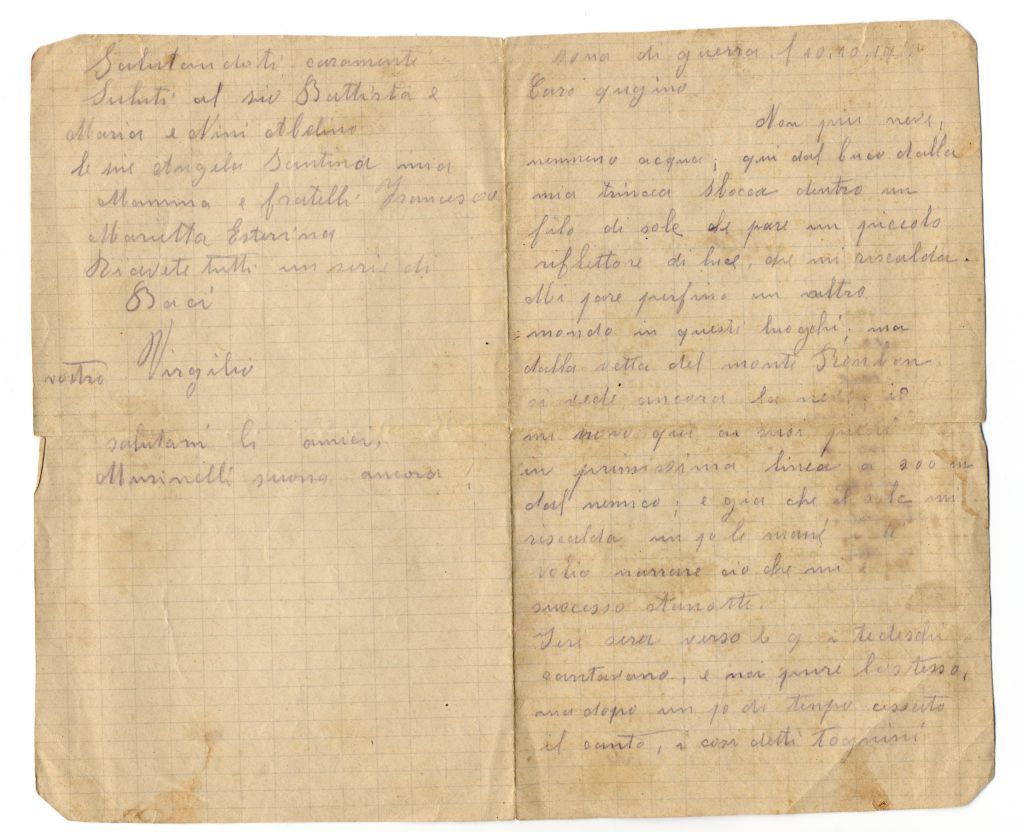 Salutandoti caramente
Saluti al sio Battista e
Maria e Nini Abelino
le sie Angela Santina mia
Mamma e fratelli Francesca
Marietta Esterina
Ricevete tutti un serie di
Baci
vostro Virgilio
salutami li amici,
Musinelli suona ancora
sona di guerra, 10.10.19
Caro gugino
Non piu neve,
nemmeno acqua; qui dal buco dalla
mia trincea sbocca dentro un
filo di sole che pare un piccolo
riflettore di luce, che mi riscalda.
Mi pare perfino un altro
mondo in questi luoghi. ma
dalla vetta del monte Rombon
si vede ancora la neve, io
mi trovo qui ai suoi piedi
in primissima linea a 200 m
dal nemico; e gia che il sole mi
riscalda un po le mani ti
volio narrare cio che mi è
successo stanotte.
Ieri sera verso le 9 i tedeschi
cantavano, e noi pure lo stesso,
ma dopo un po di tenpo cessato
il canto, i cosi detti tognini